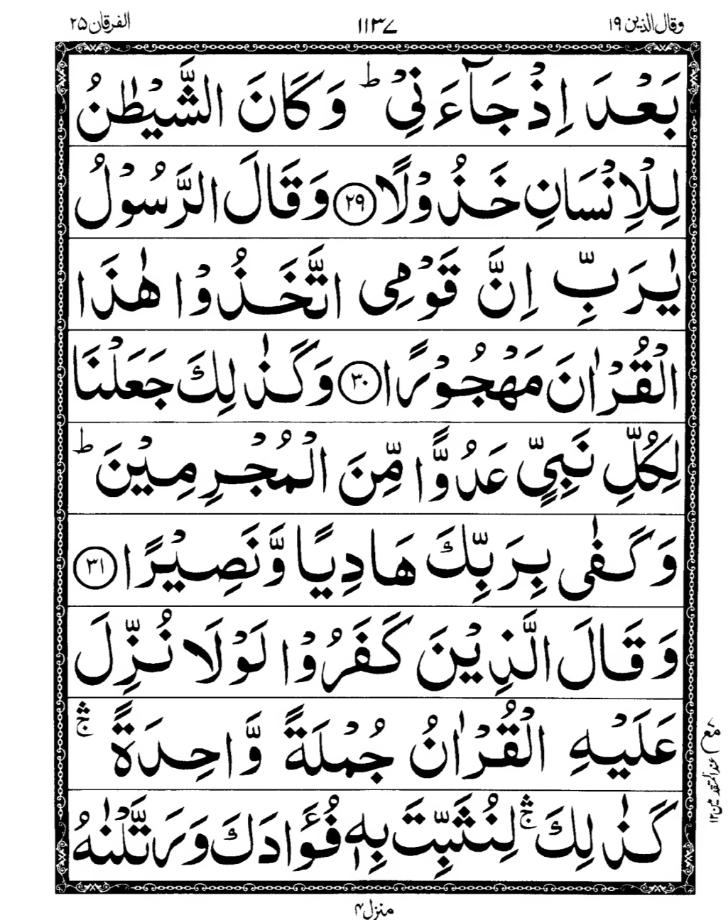 الفرقان ۲۵ ۱۱۳۷ وقال الذین ۱۹
بَعْدَ اِذْ جَآءَنِیْ ؕ وَكَانَ الشَّیْطٰنُ
لِلْاِنْسَانِ خَذُوْلًا ﴿۲۹﴾ وَقَالَ الرَّسُوْلُ
یٰرَبِّ اِنَّ قَوْمِی اتَّخَذُوْا هٰذَا
الْقُرْاٰنَ مَهْجُوْرًا ﴿۳۰﴾ وَكَذٰلِكَ جَعَلْنَا
لِكُلِّ نَبِیٍّ عَدُوًّا مِّنَ الْمُجْرِمِیْنَ ؕ
وَكَفٰی بِرَبِّكَ هَادِیًا وَّنَصِیْرًا ﴿۳۱﴾
وَقَالَ الَّذِیْنَ كَفَرُوْا لَوْلَا نُزِّلَ
عَلَیْهِ الْقُرْاٰنُ جُمْلَةً وَّاحِدَةً ۛۚ
كَذٰلِكَ ۛۚ لِنُثَبِّتَ بِهٖ فُؤَادَكَ وَرَتَّلْنٰهُ
منزل ۴